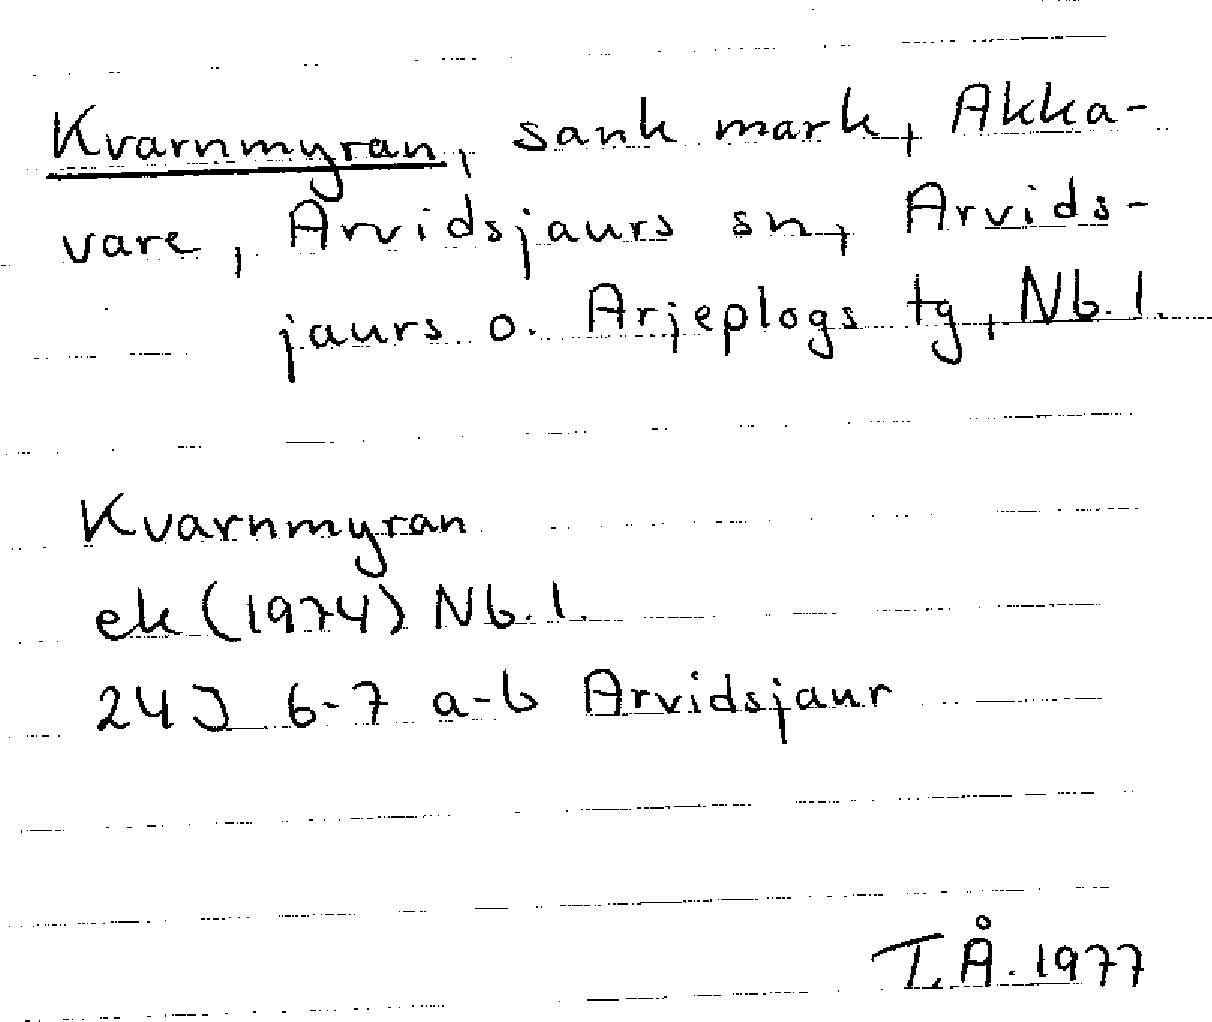 Kvarnmyran, sank mark, Akka-
vare, Arvidsjaurs sn, Arvids-
jaurs o. Arjeplogs tg, Nb. l.
Kvarnmyran
ek (1974) Nb. l.
24J 6-7 a-b Arvidsjaur
T.Å. 1977